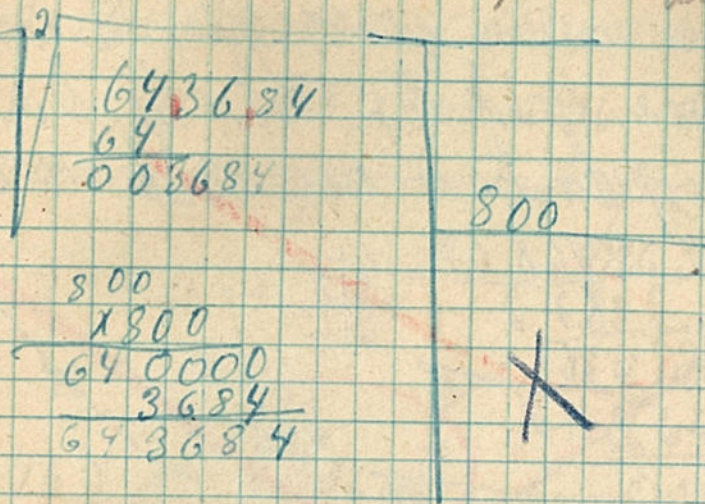 2
643684
64
003684
800
800
x800
640000
3684
643684
X